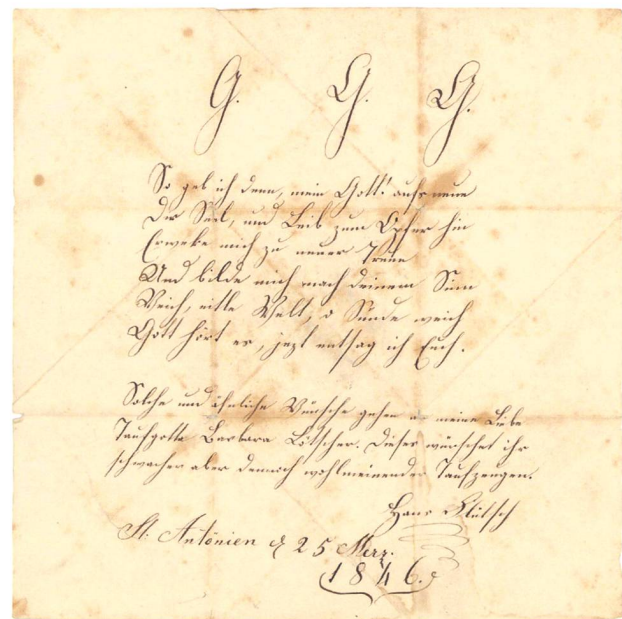 G. G. G.
So geb ich denn, mein Gott! aufs neue
Dir Seel, und Leib zum Opfer hin
Erweke mich zu neuer Treue
Und bilde mich nach deinem Sinn
Weich, eitle Welt, o Sünde weich
Gott hört es, jezt entsag ich Euch.
Solche und ähnliche Wünsche gehen an meine Liebe
Taufgotta Barbara Lötscher. Dieses wünschet ihr
schwacher aber dennoch wohlmeinender Taufzeugen.
Hans
St. Antönien d 25 Merz.
1846.